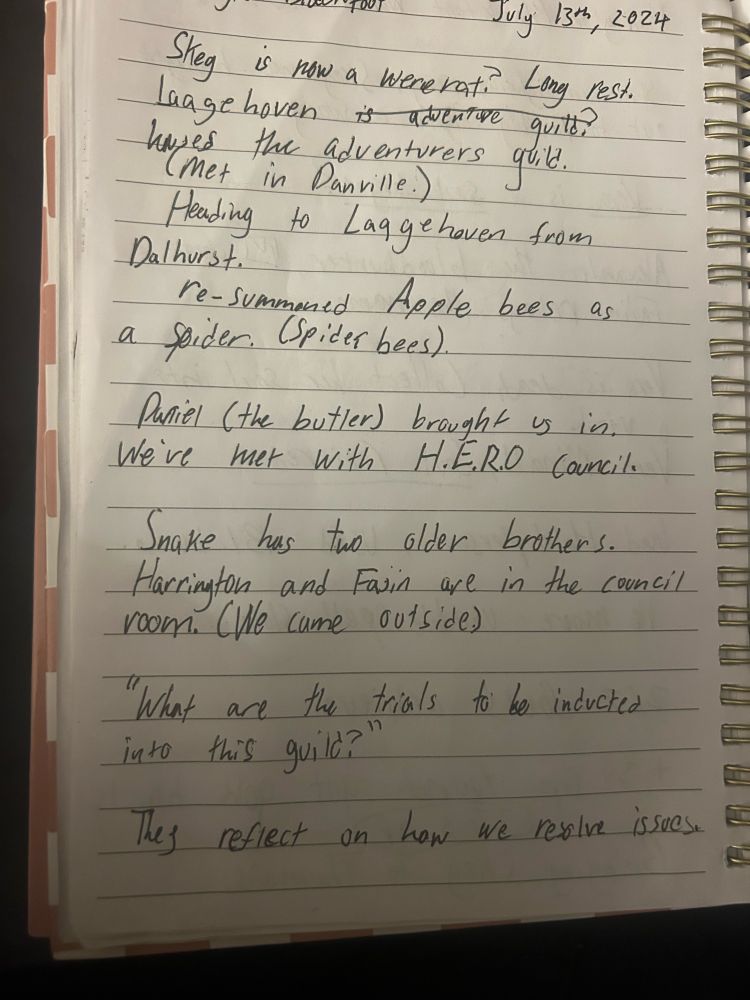 July 13th, 2024
Skeg is now a wererat? Long rest.
Laagehoven is adventure guild?
houses the adventurers guild.
(Met in Danville.)
Heading to Laagehoven from
Dalhurst.
re-summoned Apple bees as
a spider. (Spider bees).
Daniel (the butler) brought us in.
We've met with H.E.R.O Council.
Snake has two older brothers.
Harrington and Fajin are in the council
room. (We came outside)
"What are the trials to be inducted
into this guild?"
They reflect on how we resolve issues.